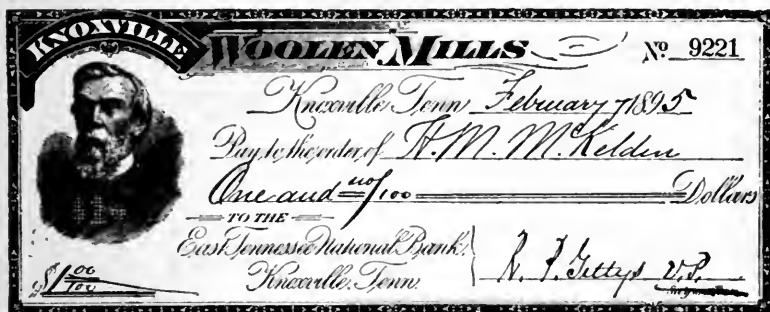 KNOXVILLE WOOLEN MILLS Nº 9221
Knoxville, Tenn. February 7 1895
Pay to the order of H. M. McKelden
One and no/100 Dollars
TO THE
East Tennessee National Bank,
Knoxville, Tenn. R. P. Gettys V.P.
$1.00/100